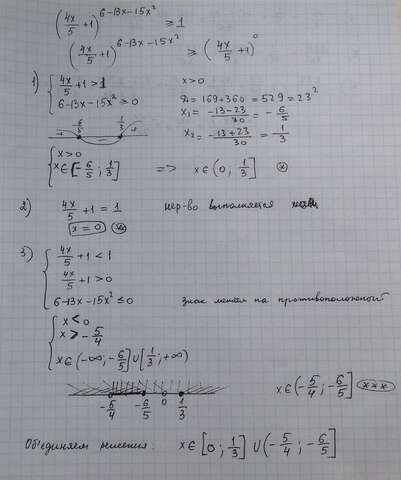 (4x/5 + 1)^(6-13x-15x²) ≥ 1
(4x/5 + 1)^(6-13x-15x²) ≥ (4x/5 + 1)^0
1) { 4x/5 + 1 > 1    x > 0
6-13x-15x² ≥ 0    D = 169+360 = 529 = 23²
x₁ = (-13-23)/30 = -6/5
-6/5    1/3
x₂ = (-13+23)/30 = 1/3
{ x > 0
x ∈ [-6/5 ; 1/3]    =>    x ∈ (0 ; 1/3] (*)
2) 4x/5 + 1 = 1    нер-во выполняется
x = 0 (**)
3) { 4x/5 + 1 < 1
4x/5 + 1 > 0
6-13x-15x² ≤ 0    знак меняем на противоположный
{ x < 0
x > -5/4
x ∈ (-∞; -6/5] ∪ [1/3 ; +∞)
-5/4    -6/5    0    1/3
x ∈ (-5/4 ; -6/5] (***)
Объединяем решения: x ∈ [0 ; 1/3] ∪ (-5/4 ; -6/5]